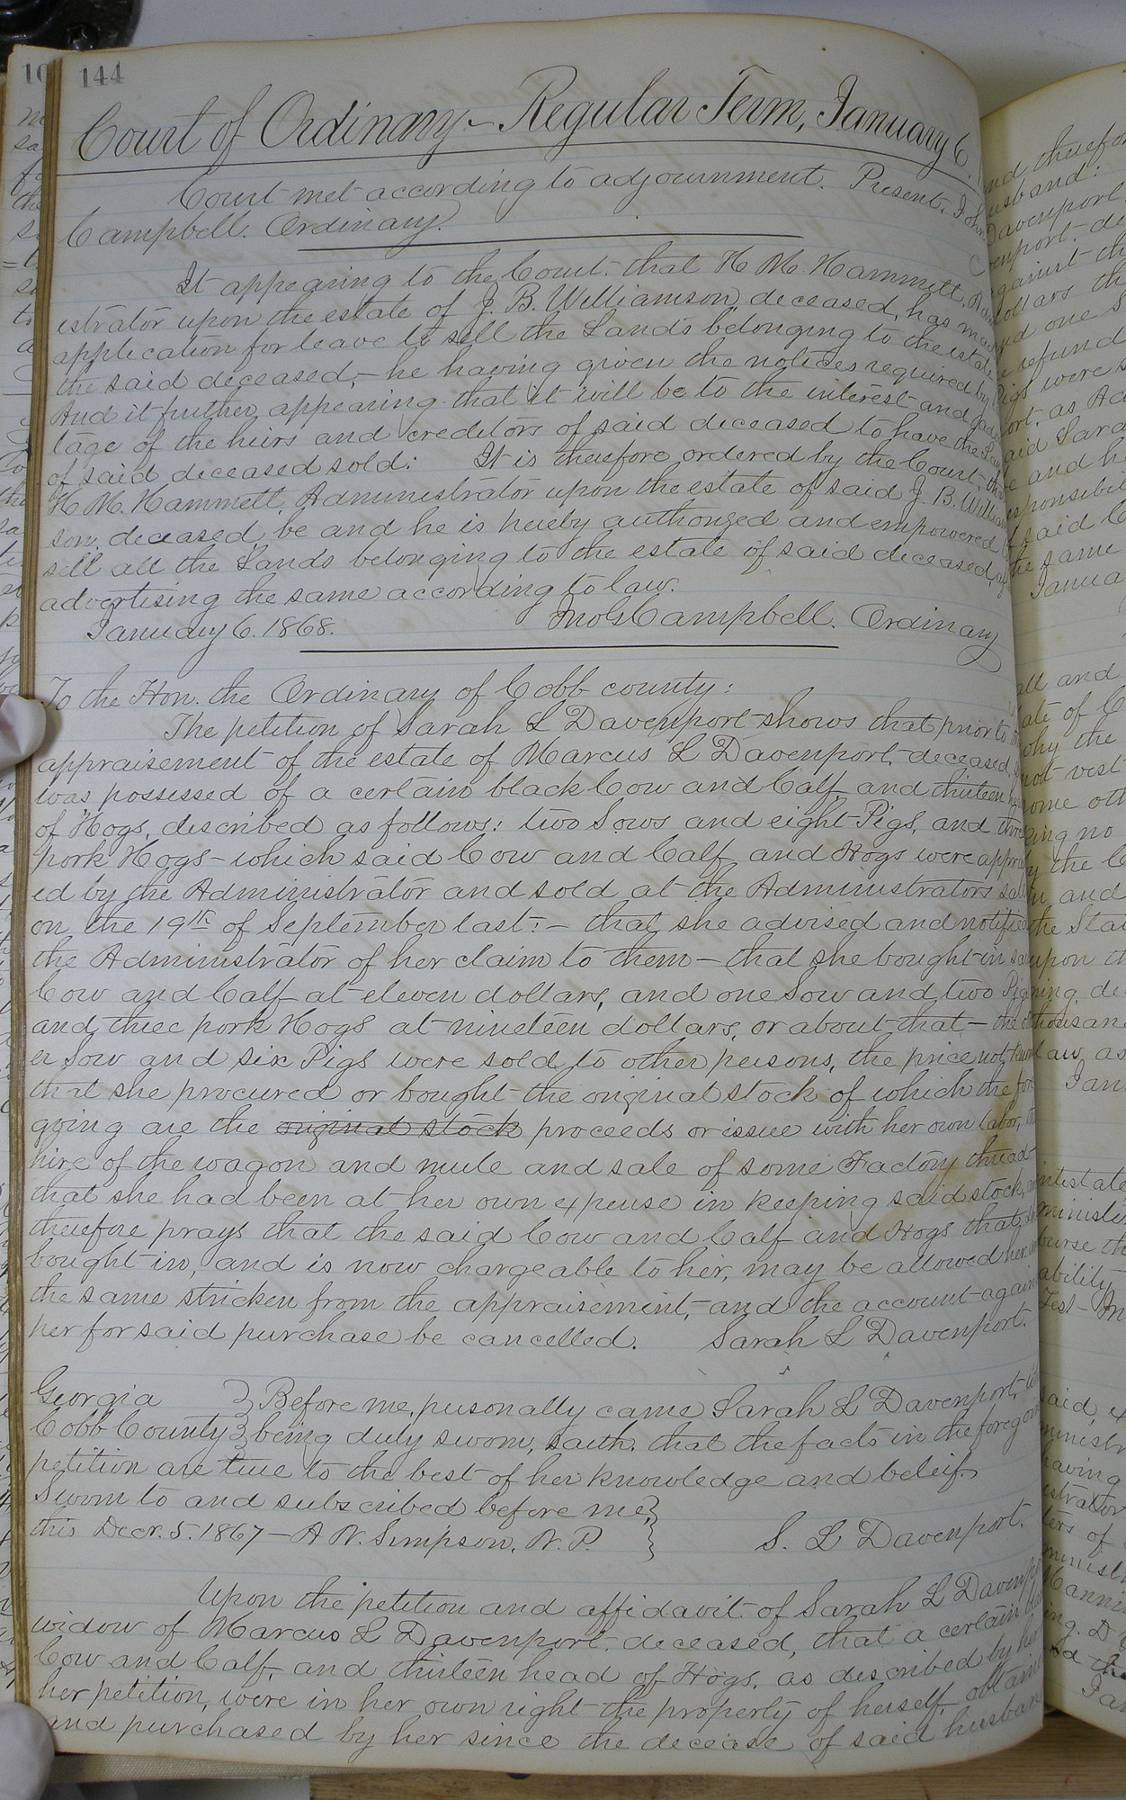 144
Court of Ordinary – Regular Term, January 6
Court met according to adjournment. Present. John
Campbell. Ordinary.
It appearing to the Court. that H. M. Hammett,
istrator upon the estate of J. B. Williamson, deceased, has made
application for leave to sell the Lands belonging to the estate
the said deceased, – he having given the notices required by
And it further appearing that it will be to the interest and
tage of the heirs and creditors of said deceased to have the
of said deceased sold: It is therefore ordered by the Court,
H. M. Hammett, Administrator upon the estate of said J. B. William
son, deceased, be and he is hereby authorized and empowered
sell all the Lands belonging to the estate of said deceased,
advertising the same according to law.
January 6. 1868. Jno G Campbell. Ordinary
To the Hon. the Ordinary of Cobb county:
The petition of Sarah L Davenport shows that prior to
appraisement of the estate of Marcus L Davenport, deceased,
was possessed of a certain black Cow and Calf and thirteen
of Hogs, described as follows: two Sows and eight Pigs, and three
pork Hogs – which said Cow and Calf and Hogs were apprais
ed by the Administrator and sold at the Administrators sale
on the 19th of September last: – that she advised and notified
the Administrator of her claim to them – that she bought in
Cow and Calf at eleven dollars, and one Sow and two Pigs
and three pork Hogs at nineteen dollars, or about that –
er Sow and six Pigs were sold to other persons, the price not
that she procured or bought the original stock of which the fore
going are the original stock proceeds or issue with her own labor,
hire of the wagon and mule and sale of some Factory thread
that she had been at her own expense in keeping said stock,
therefore prays that the said Cow and Calf and Hogs that
bought in, and is now chargeable to her, may be allowed her
the same stricken from the appraisement, – and the account again
her for said purchase be cancelled. Sarah L Davenport.
Georgia } Before me, pusonally came Sarah L Davenport,
Cobb County } being duly sworn, saith, that the facts in the foregoin
petition are true to the best of her knowledge and beleif.
Sworn to and subscribed before me, }
this Decr. 5. 1867 – A N. Simpson, N. P. } S. L Davenport.
Upon the petition and affidavit of Sarah L Davenport
widow of Marcus L Davenport, deceased, that a certain
Cow and Calf, and thirteen head of Hogs, as described by her
her petition, were in her own right the property of herself, obtained
and purchased by her since the decease of said husban